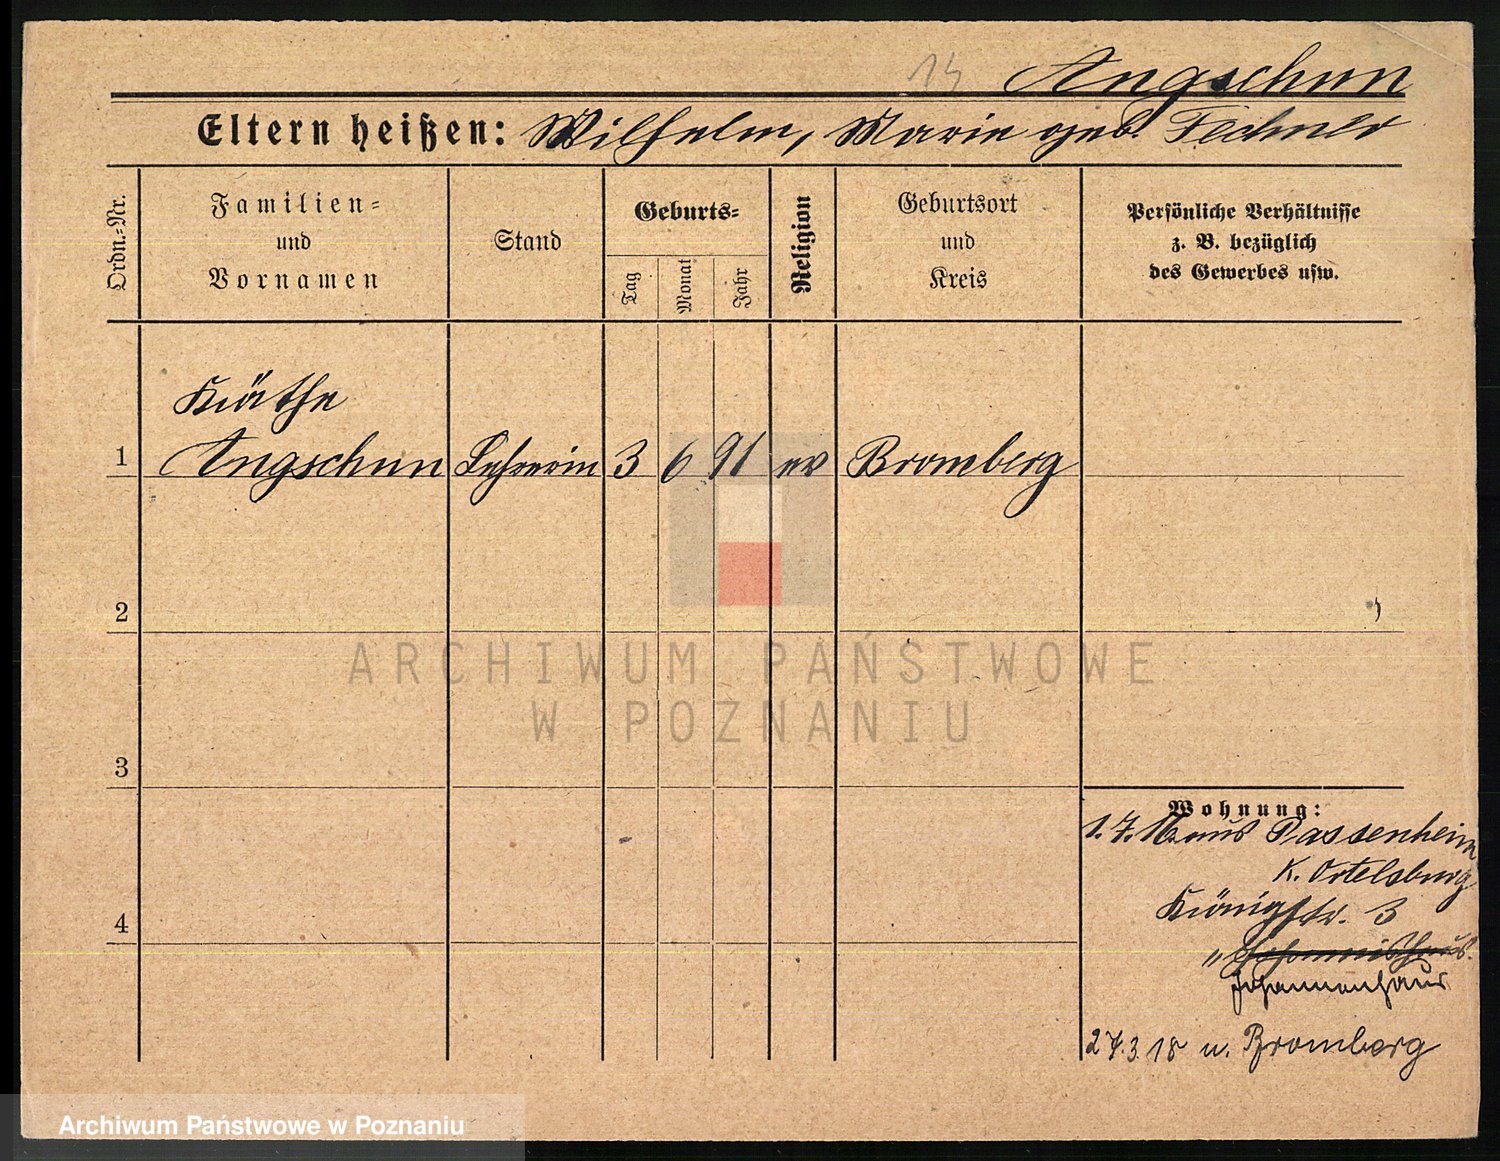 Angschun
Eltern heißen: Wilhelm, Marie geb. Fechner
Ordn.-Nr.
Familien-
und
Vornamen
Stand
Geburts-
Tag
Monat
Jahr
Religion
Geburtsort
und
Kreis
Persönliche Verhältnisse
z. B. bezüglich
des Gewerbes usw.
Käthe
1 Angschun Lehrerin 3 6 91 ev Bromberg
2
ARCHIWUM PAŃSTWOWE
W POZNANIU
3
Wohnung:
1.7.16 aus Passenheim
K. Ortelsburg
4 Königstr. 3
„ Johannishaus.
Johannenhaus
27.3.18 n. Bromberg
Archiwum Państwowe w Poznaniu